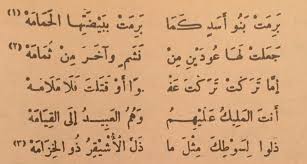 بَرِمَتْ بَنُو أَسَدٍ كَمَا بَرِمَتْ بِبَيْضَتِهَا الْحَمَامَهْ (١)
جَعَلَتْ لَهَا عُودَيْنِ مِنْ نَشَمٍ وَآخَرَ مِنْ ثُمَامَهْ (٢)
إِمَّا تَرَكْتَ تَرَكْتَ عَفْـ ـوًا أَوْ قَتَلْتَ فَلَا مَلَامَهْ
أَنْتَ الْمَلِيكُ عَلَيْهِمُ وَهُمُ الْعَبِيدُ إِلَى الْقِيَامَهْ
ذَلُّوا لِسَوْطِكَ مِثْلَ مَا ذَلَّ الْأُشَيْقِرُ ذُو الْخِزَامَهْ (٣)